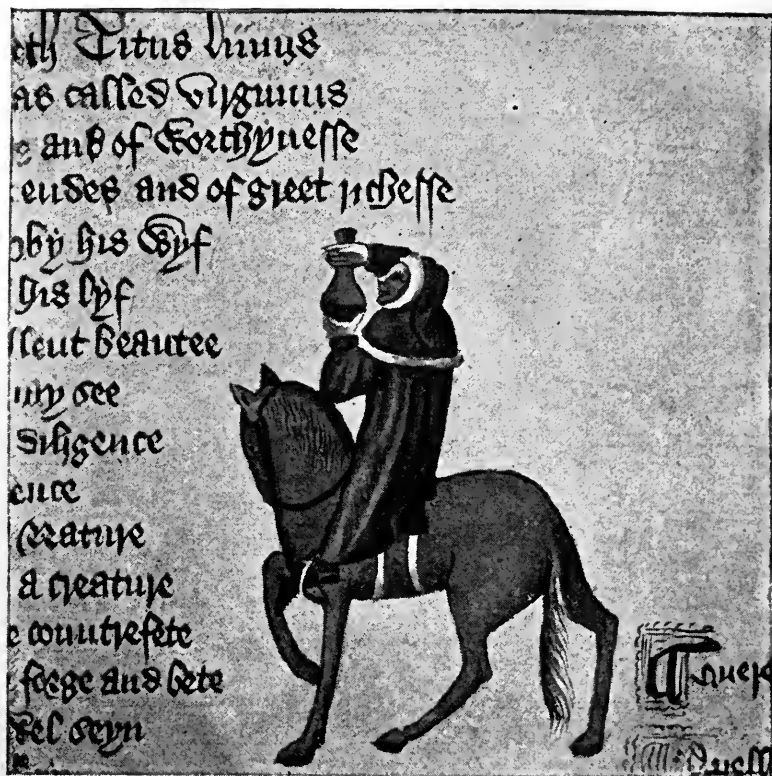 eth Titus liuius
as called virginius
e and of worthynesse
endes and of greet richesse
by his wyf
his lyf
llent beautee
may see
diligence
ence
Nature
a creature
e countrefete
forge and bete
wel seyn